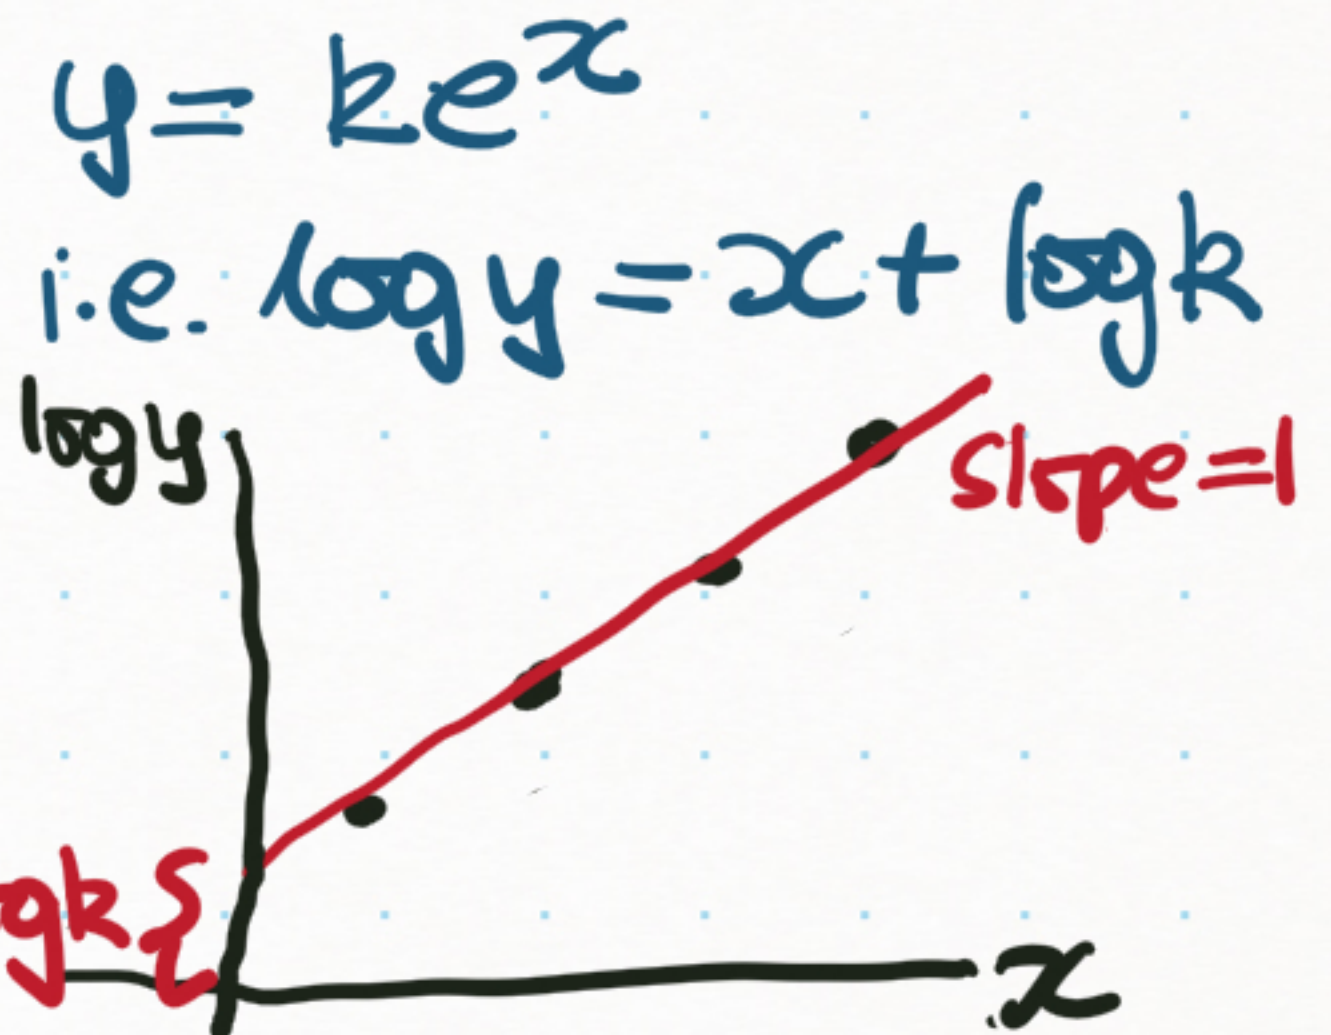 y = ke^x
i.e. log y = x + log k
log y
slope = 1
gk {
x